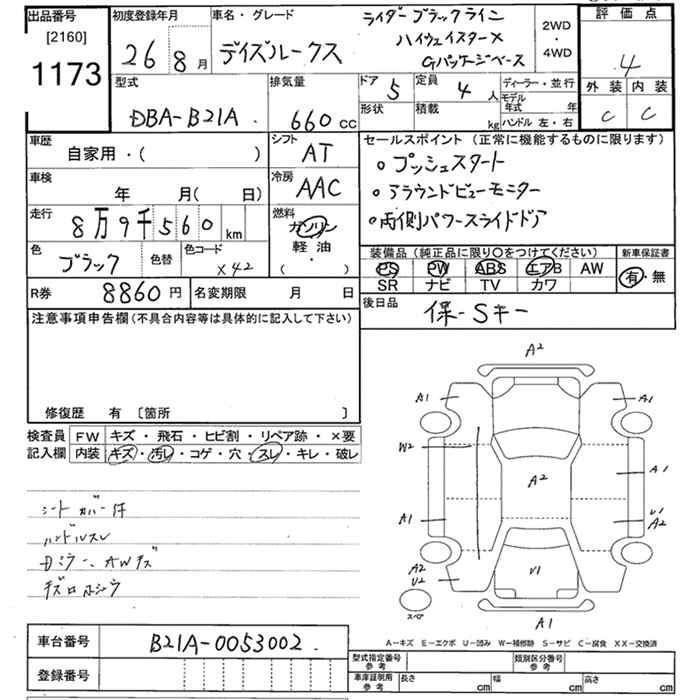 出品番号
[2160]
1173
初度登録年月
26 8月
車名・グレード
デイズルークス
ライダーブラックライン
ハイウェイスターX
Gパッケージベース
2WD
・
4WD
評価点
4
外装 内装
C C
型式
DBA-B21A
排気量
660 CC
ドア 5
形状
定員 4人
積載 kg
ディーラー・並行
モデル年式 年
ハンドル 左・右
車歴
自家用・( )
シフト
AT
車検
年 月( 日)
冷房
AAC
走行
8万9千560 km
燃料
ガソリン
軽油
( ・ )
色
ブラック
色替
色コード
X42
R券
8860円
名変期限 月 日
セールスポイント(正常に機能するものに限ります)
○プッシュスタート
○アラウンドビューモニター
○両側パワースライドドア
装備品(純正品に限り○をつけてください)
PS PW ABS エアB AW
SR ナビ TV カワ
新車保証書
有・無
後日品
保-Sキー
注意事項申告欄(不具合内容等は具体的に記入して下さい)
修復歴 有 [箇所 ]
検査員記入欄
FW キズ・飛石・ヒビ割・リペア跡・×要
内装 キズ・汚レ・コゲ・穴・スレ・キレ・破レ
シートカバー付
ハンドルスレ
A2
A1 A1
W2
A2
A1
A1
U1
A2
A2
U2
U1
スペア
A1
A-キズ E-エクボ U-凹み W-補修跡 S-サビ C-腐食 XX-交換済
車台番号
B21A-0053002
登録番号
型式指定番号
参考
類別区分番号
参考
車庫証明用
参考
長さ cm 幅 cm 高さ cm